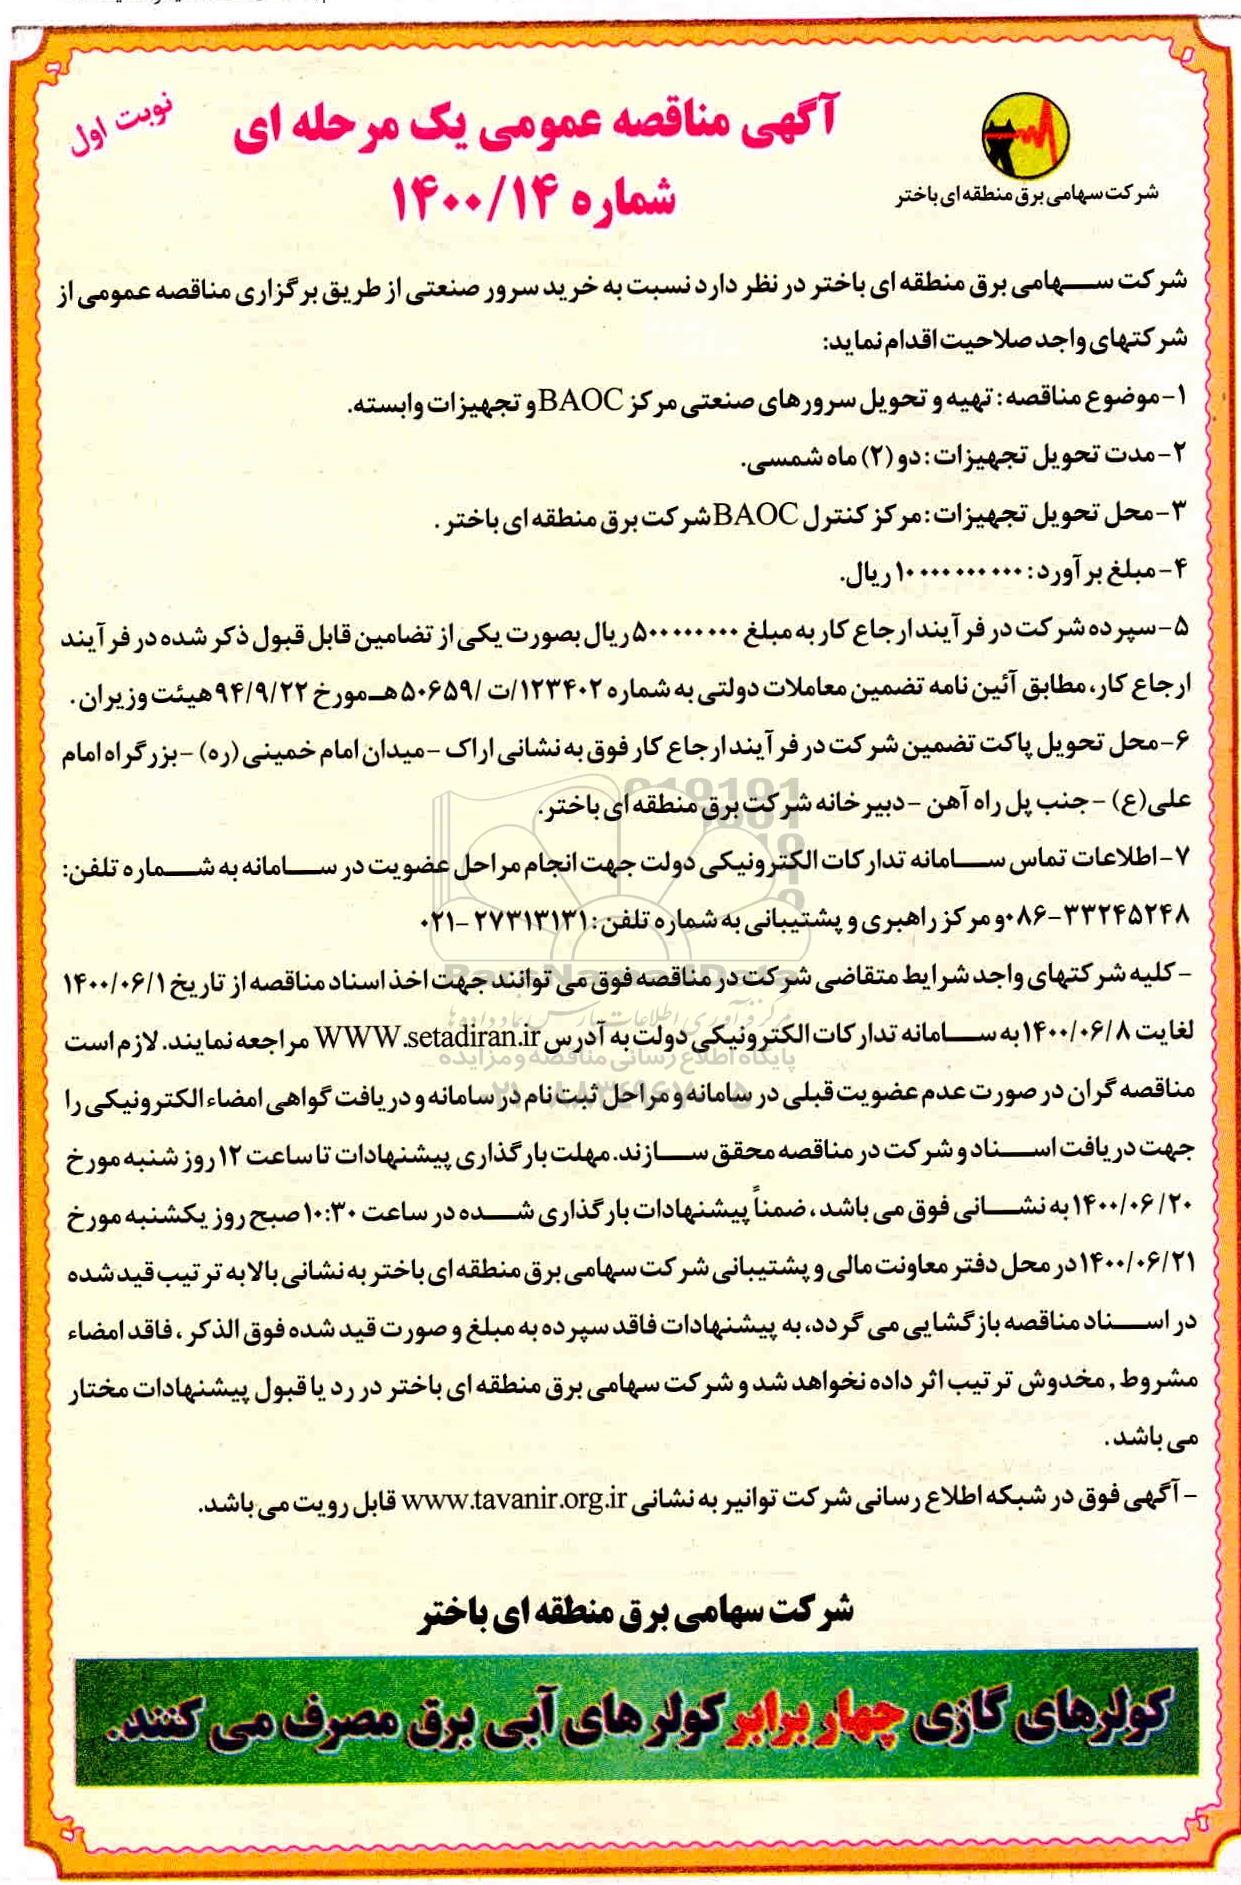 نوبت اول
آگهی مناقصه عمومی یک مرحله ای
شماره ۱۴۰۰/۱۴
شرکت سهامی برق منطقه ای باختر
شرکت سهامی برق منطقه ای باختر در نظر دارد نسبت به خرید سرور صنعتی از طریق برگزاری مناقصه عمومی از
شرکتهای واجد صلاحیت اقدام نماید:
۱-موضوع مناقصه: تهیه و تحویل سرورهای صنعتی مرکز BAOC و تجهیزات وابسته.
۲-مدت تحویل تجهیزات: دو (۲) ماه شمسی.
۳-محل تحویل تجهیزات: مرکز کنترل BAOC شرکت برق منطقه ای باختر.
۴-مبلغ برآورد: ۱۰۰۰۰۰۰۰۰۰۰ ریال.
۵-سپرده شرکت در فرآیند ارجاع کار به مبلغ ۵۰۰۰۰۰۰۰۰ ریال بصورت یکی از تضامین قابل قبول ذکر شده در فرآیند
ارجاع کار، مطابق آئین نامه تضمین معاملات دولتی به شماره ۱۲۳۴۰۲/ت /۵۰۶۵۹هـ مورخ ۹۴/۹/۲۲ هیئت وزیران.
۶-محل تحویل پاکت تضمین شرکت در فرآیند ارجاع کار فوق به نشانی اراک -میدان امام خمینی (ره) -بزرگراه امام
علی(ع) -جنب پل راه آهن -دبیرخانه شرکت برق منطقه ای باختر.
۷-اطلاعات تماس سامانه تدارکات الکترونیکی دولت جهت انجام مراحل عضویت در سامانه به شماره تلفن:
۰۸۶-۳۳۲۴۵۲۴۸ و مرکز راهبری و پشتیبانی به شماره تلفن: ۰۲۱- ۲۷۳۱۳۱۳۱
-کلیه شرکتهای واجد شرایط متقاضی شرکت در مناقصه فوق می توانند جهت اخذ اسناد مناقصه از تاریخ ۱۴۰۰/۰۶/۱
لغایت ۱۴۰۰/۰۶/۸ به سامانه تدارکات الکترونیکی دولت به آدرس WWW.setadiran.ir مراجعه نمایند. لازم است
مناقصه گران در صورت عدم عضویت قبلی در سامانه و مراحل ثبت نام در سامانه و دریافت گواهی امضاء الکترونیکی را
جهت دریافت اسناد و شرکت در مناقصه محقق سازند. مهلت بارگذاری پیشنهادات تا ساعت ۱۲ روز شنبه مورخ
۱۴۰۰/۰۶/۲۰ به نشانی فوق می باشد، ضمناً پیشنهادات بارگذاری شده در ساعت ۱۰:۳۰ صبح روز یکشنبه مورخ
۱۴۰۰/۰۶/۲۱ در محل دفتر معاونت مالی و پشتیبانی شرکت سهامی برق منطقه ای باختر به نشانی بالا به ترتیب قید شده
در اسناد مناقصه بازگشایی می گردد، به پیشنهادات فاقد سپرده به مبلغ و صورت قید شده فوق الذکر، فاقد امضاء
مشروط, مخدوش ترتیب اثر داده نخواهد شد و شرکت سهامی برق منطقه ای باختر در رد یا قبول پیشنهادات مختار
می باشد.
-آگهی فوق در شبکه اطلاع رسانی شرکت توانیر به نشانی www.tavanir.org.ir قابل رویت می باشد.
شرکت سهامی برق منطقه ای باختر
کولرهای گازی چهار برابر کولرهای آبی برق مصرف می کنند.
پایگاه اطلاع رسانی مناقصه و مزایده